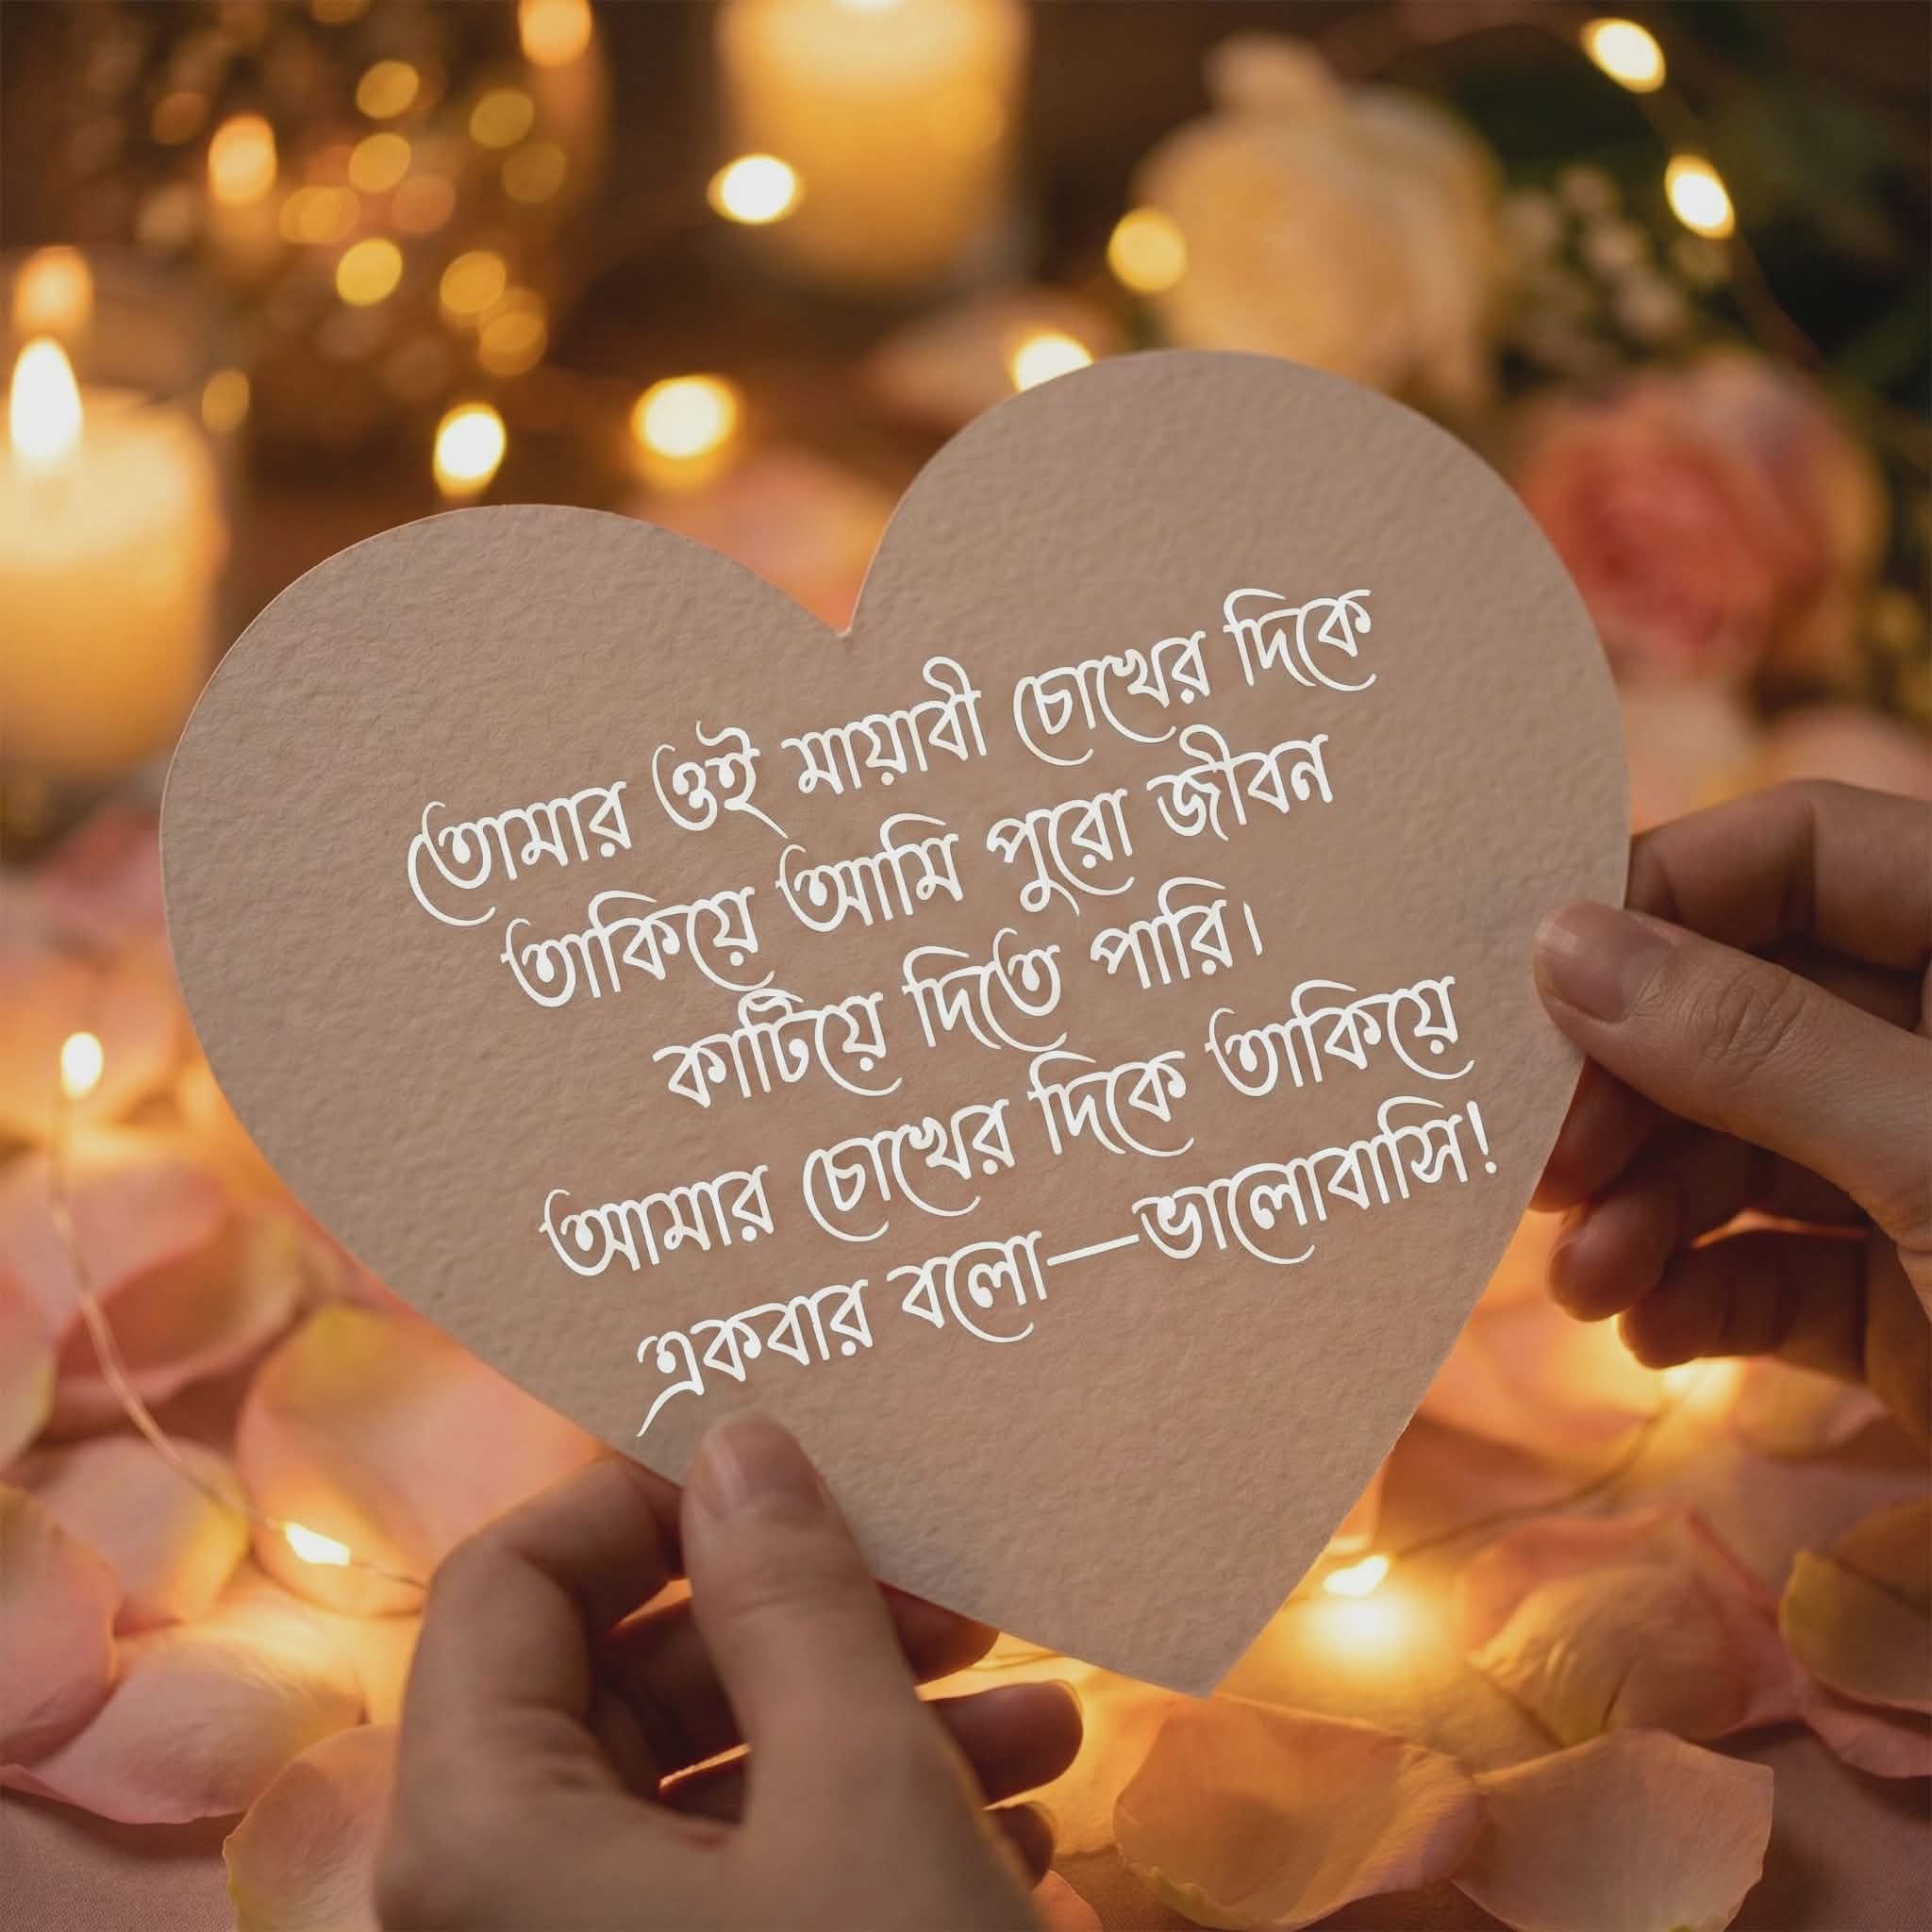 তোমার ওই মায়াবী চোখের দিকে
তাকিয়ে আমি পুরো জীবন
কাটিয়ে দিতে পারি।
আমার চোখের দিকে তাকিয়ে
একবার বলো—ভালোবাসি!